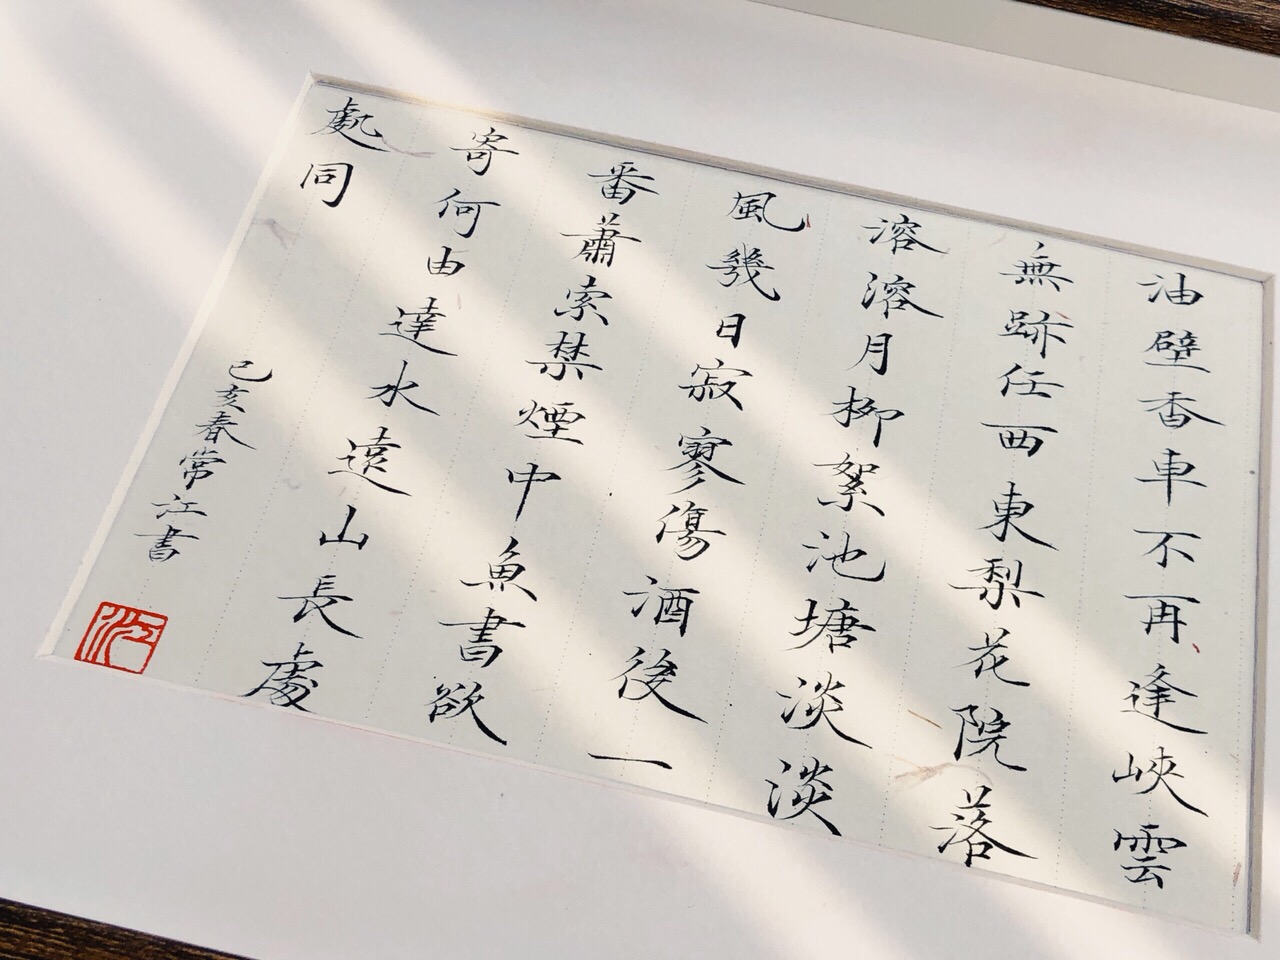 油壁香車不再逢峽雲
無跡任西東梨花院落
溶溶月柳絮池塘淡淡
風幾日寂寥傷酒後一
番蕭索禁煙中魚書欲
寄何由達水遠山長處
處同
己亥春常江書
江